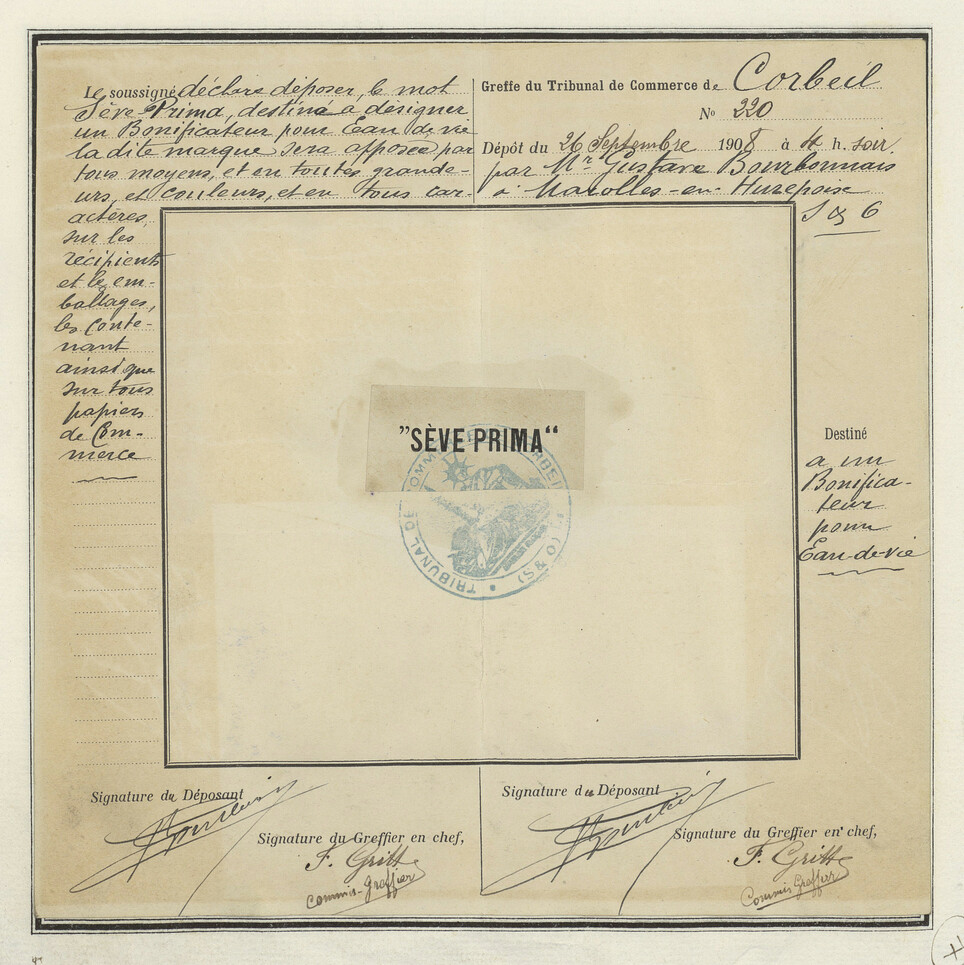 Le soussigné déclare déposer, le mot
Sève Prima, destiné à désigner
un Bonificateur pour Eau de vie
la dite marque sera apposée par
tous moyens, et en toutes grande-
urs, et couleurs, et en tous car-
actères,
sur les
récipients
et les em-
ballages,
les conte-
nant
ainsi que
sur tous
papiers
de Com-
merce
Greffe du Tribunal de Commerce de Corbeil
No 220
Dépôt du 26 Septembre 1908 à 4 h. soir.
par Mr Gustave Bourbonnais
à Marolles-en-Hurepoise
S & 6
"SÈVE PRIMA"
TRIBUNAL DE COMMERCE DE CORBEIL (S & O)
Destiné
a un
Bonifica-
teur
pour
Eau-de-vie
Signature du Déposant
Signature du Greffier en chef,
F. Gritt
commis-Greffier
Signature du Déposant
Signature du Greffier en chef,
F. Gritt
Commis Greffier